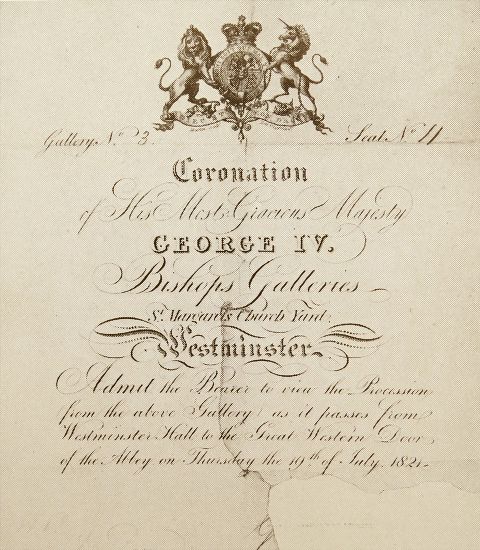 Gallery No. 3. Seat No. 11
Coronation
of His Most Gracious Majesty
GEORGE IV.
Bishops Galleries
St. Margarets Church Yard.
Westminster.
Admit the Bearer to view the Procession
from the above Gallery as it passes from
Westminster Hall to the Great Western Door
of the Abbey on Thursday the 19th of July. 1821.